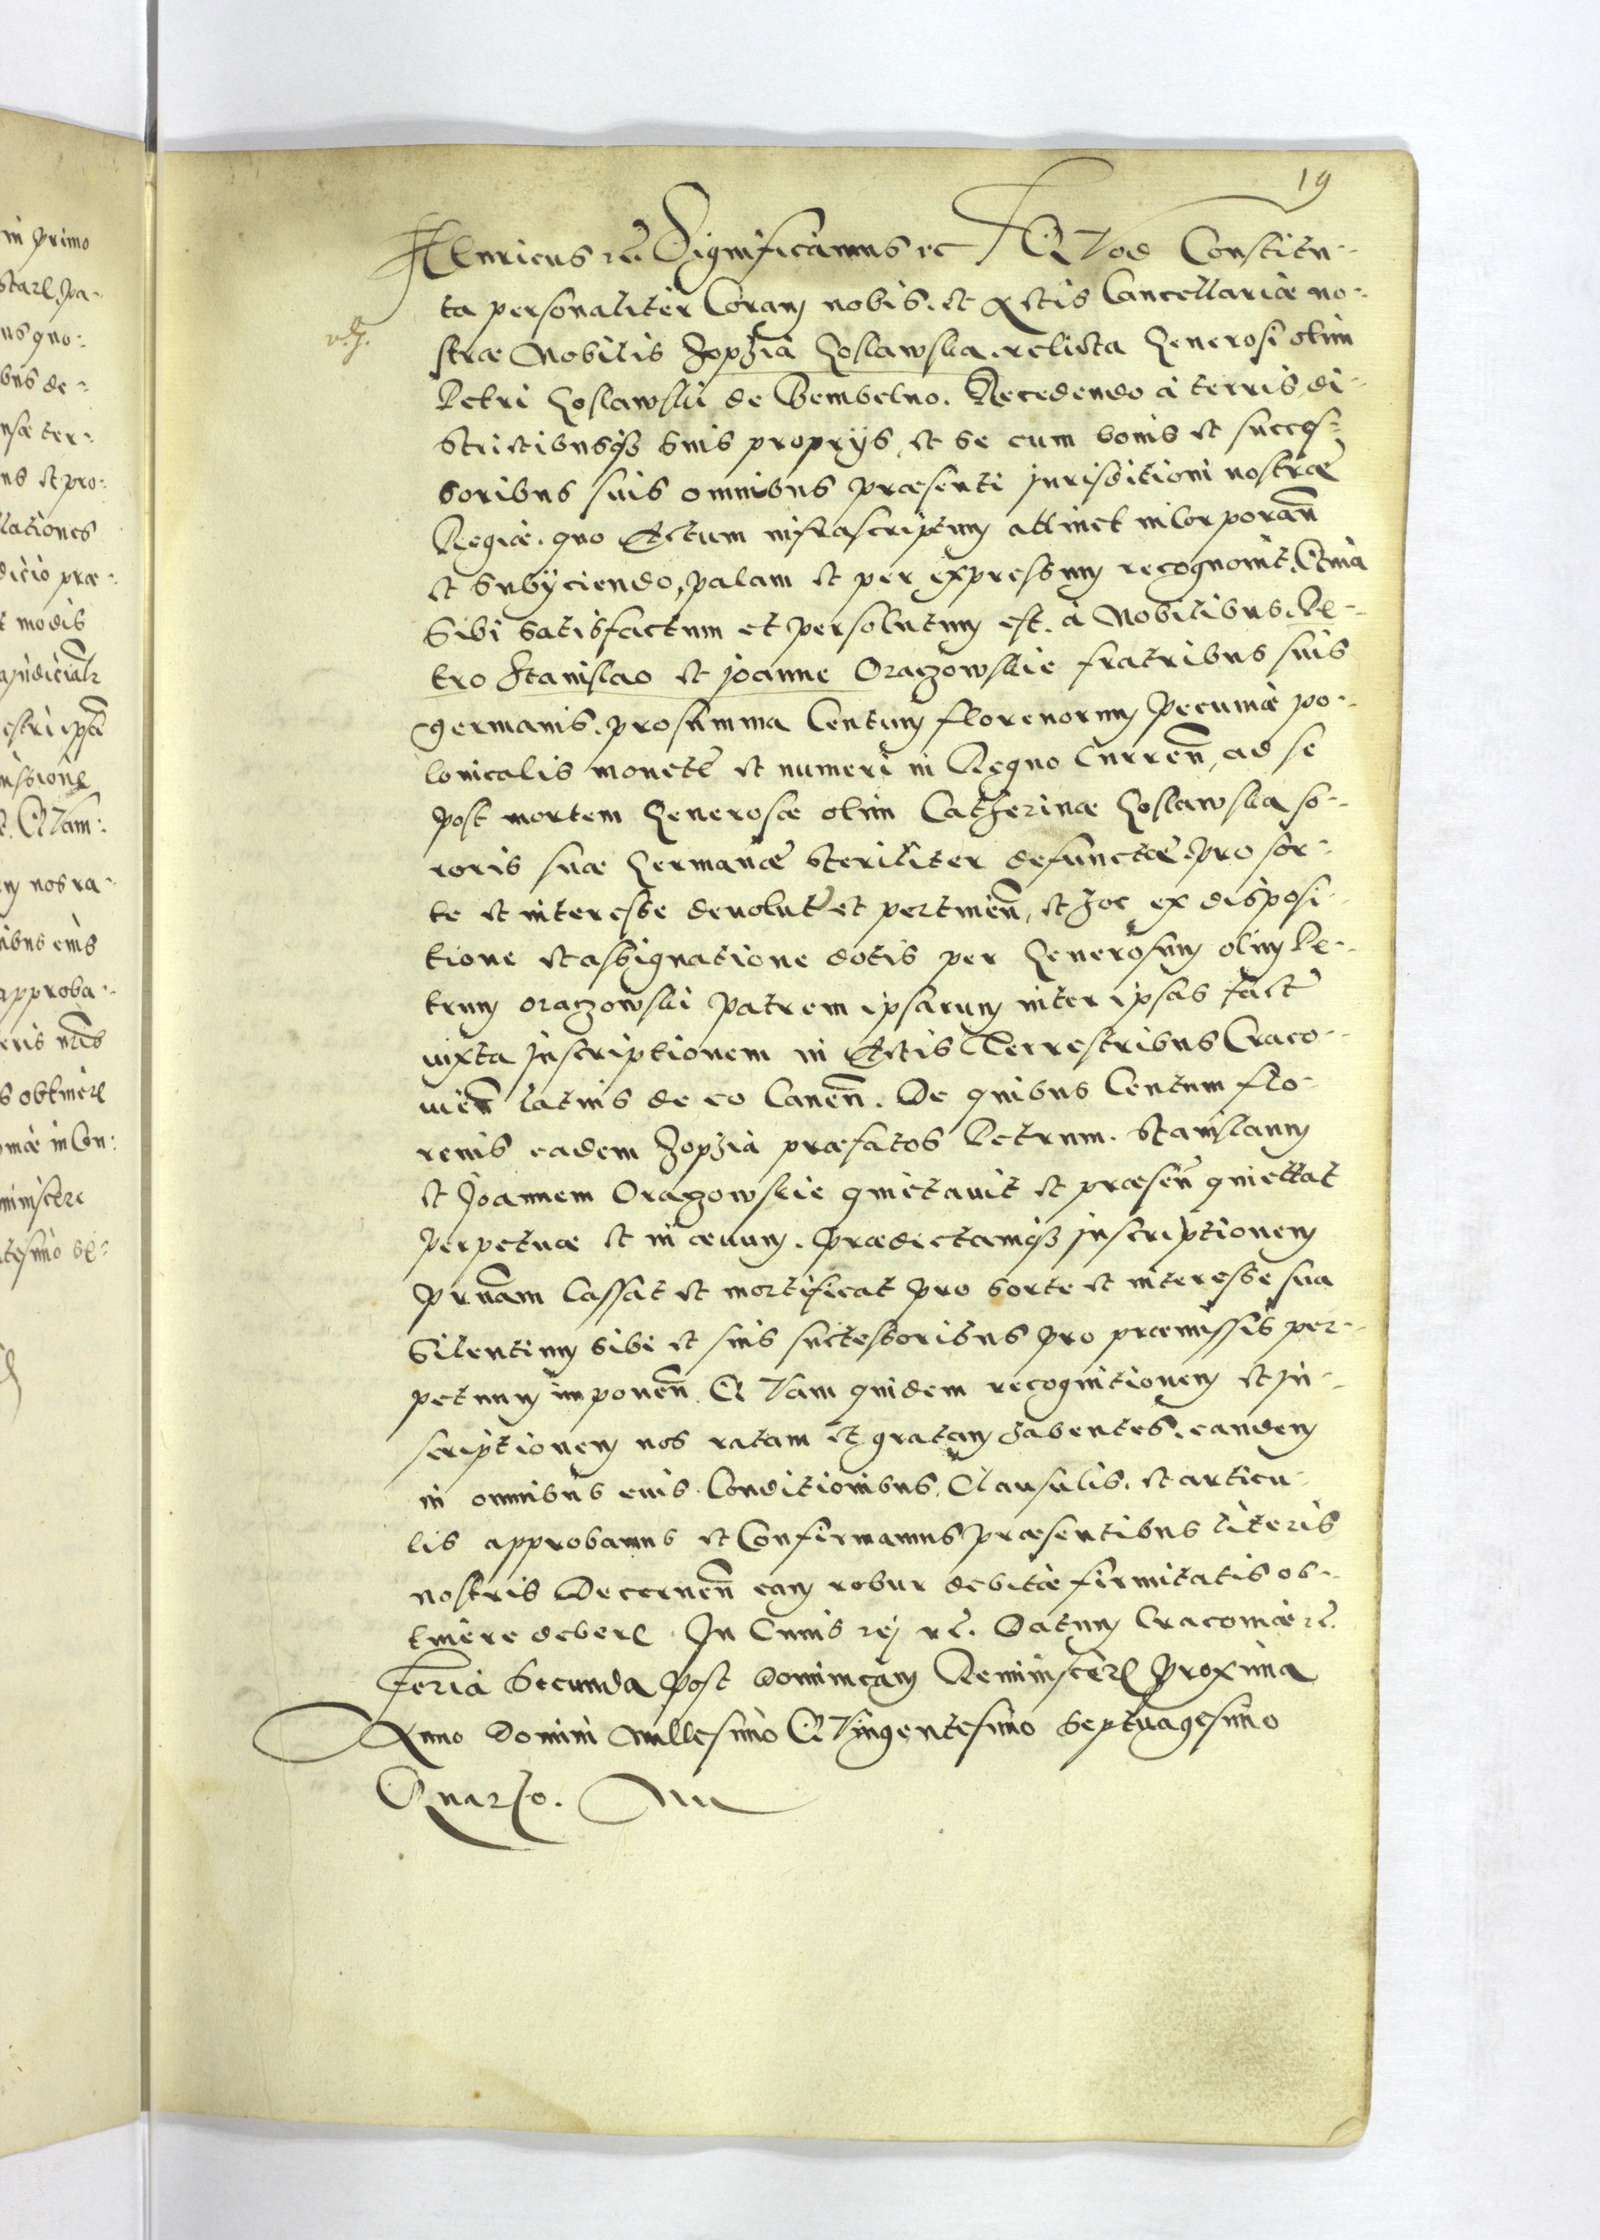 19
HEnricus etc. Significamus etc QVod Constitu-
ta personaliter Coram nobis. et Actis Cancellariæ no-
stræ Nobilis Zophia Koslawska. relicta Generosi olim
Petri Koslawski de Bembelno. Recedendo à terris, di-
strictibusq3 suis proprijs, et se cum bonis et succes-
soribus suis omnibus præsenti jurisditioni nostræ
Regiæ. quo Actum infrascriptum attinet inCorporan̄
et subijciendo, palam et per expressum recognovit, Quia
sibi satisfactum et persolutum est. à Nobilibus. Pe-
tro Stanislao et joanne Oraczowskie fratribus suis
germanis. pro summa Centum florenorum Pecuniæ po-
lonicalis monetæ et numeri in Regno Curren̄, ad se
post mortem Generosæ olim Catherinæ Koslawska so-
roris suæ Germanæ steriliter defunctæ. pro sor-
te et interesse devolut et pertinen̄, et hoc ex disposi-
tione et assignatione dotis per Generosum olim Pe-
trum Oraczowski Patrem ipsarum inter ipsas fact
iuxta jnscriptionem in Actis Terrestribus Craco-
uien̄ latius de eo Canen̄. De quibus Centum flo-
renis eadem Zophia præfatos Petrum. Stanislaum
et Joannem Oraczowskie quietauit et præsen̄ quiettat
perpetuæ et in æuum. Prædictamq3 jnscriptionem
prn̄am Cassat et mortificat pro sorte et interesse sua
Silentium sibi et suis succtessoribus pro præmissis per-
petuum imponen̄. QVam quidem recognitionem et jn-
scriptionem nos ratam et gratam habentes. eandem
in omnibus eius Conditionibus, Clausulis. et articu-
lis approbamus et Confirmamus Præsentibus literis
nostris Decernen̄ eam robur debitæ firmitatis ob-
tinere debere. In Cuius rej etc. Datum Cracoviæ etc.
feria Secunda post Dominicam Reminiscere Proxima
Anno Domini Millesimo QVingentesimo Septuagesimo
Quarto.